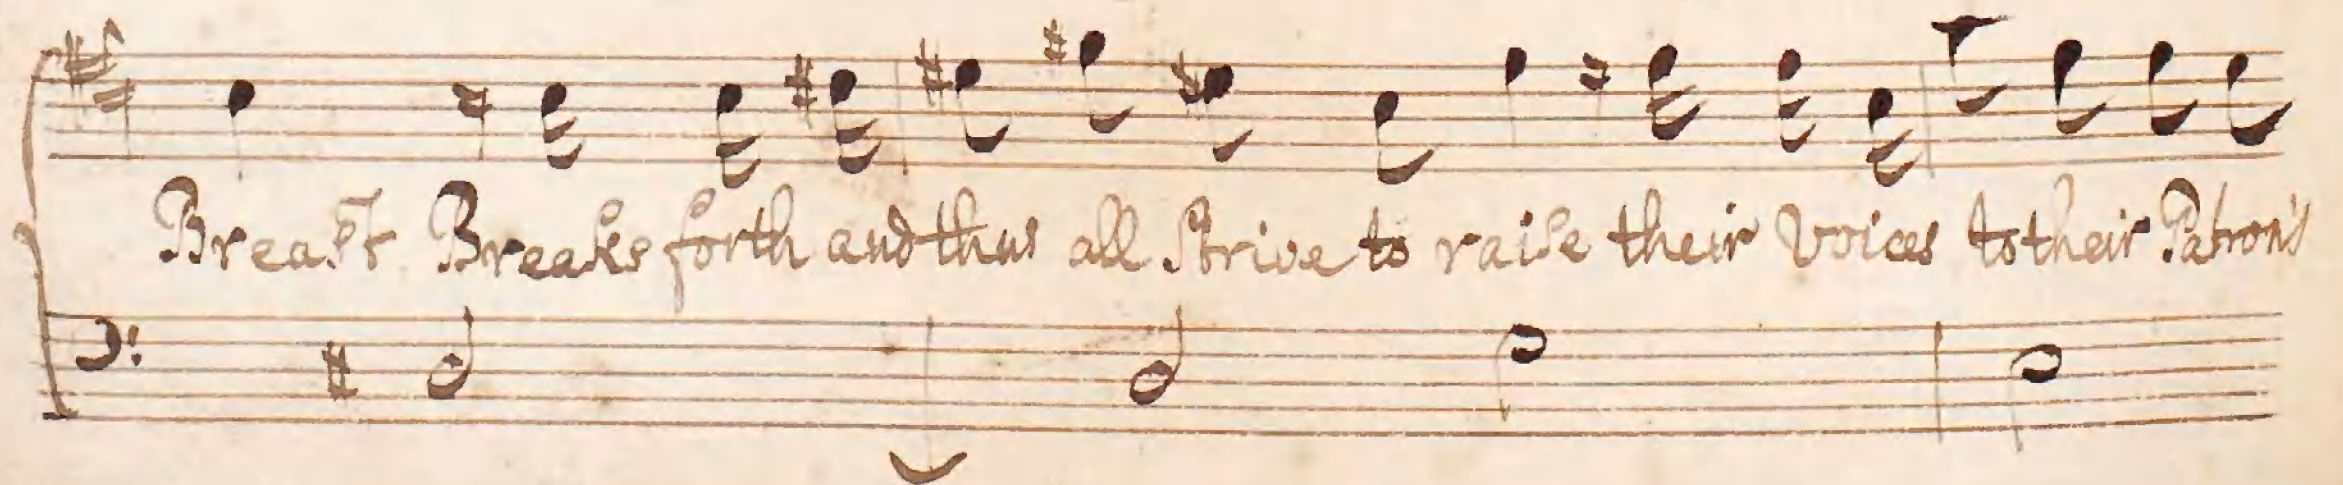 Breast Breaks forth and thus all Strive to raise their Voices to their Patron's